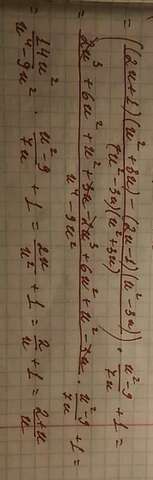 = ((2u+1)(u²+3u) - (2u-1)(u²-3u)) / ((u²-3u)(u²+3u)) · (u²-9)/(7u) + 1 =
= (2u³ + 6u² + u² + 3u - 2u³ + 6u² + u² - 3u) / (u⁴ - 9u²) · (u²-9)/(7u) + 1 =
= 14u²/(u⁴-9u²) · (u²-9)/(7u) + 1 = 2u/u² + 1 = 2/u + 1 = (2+u)/u